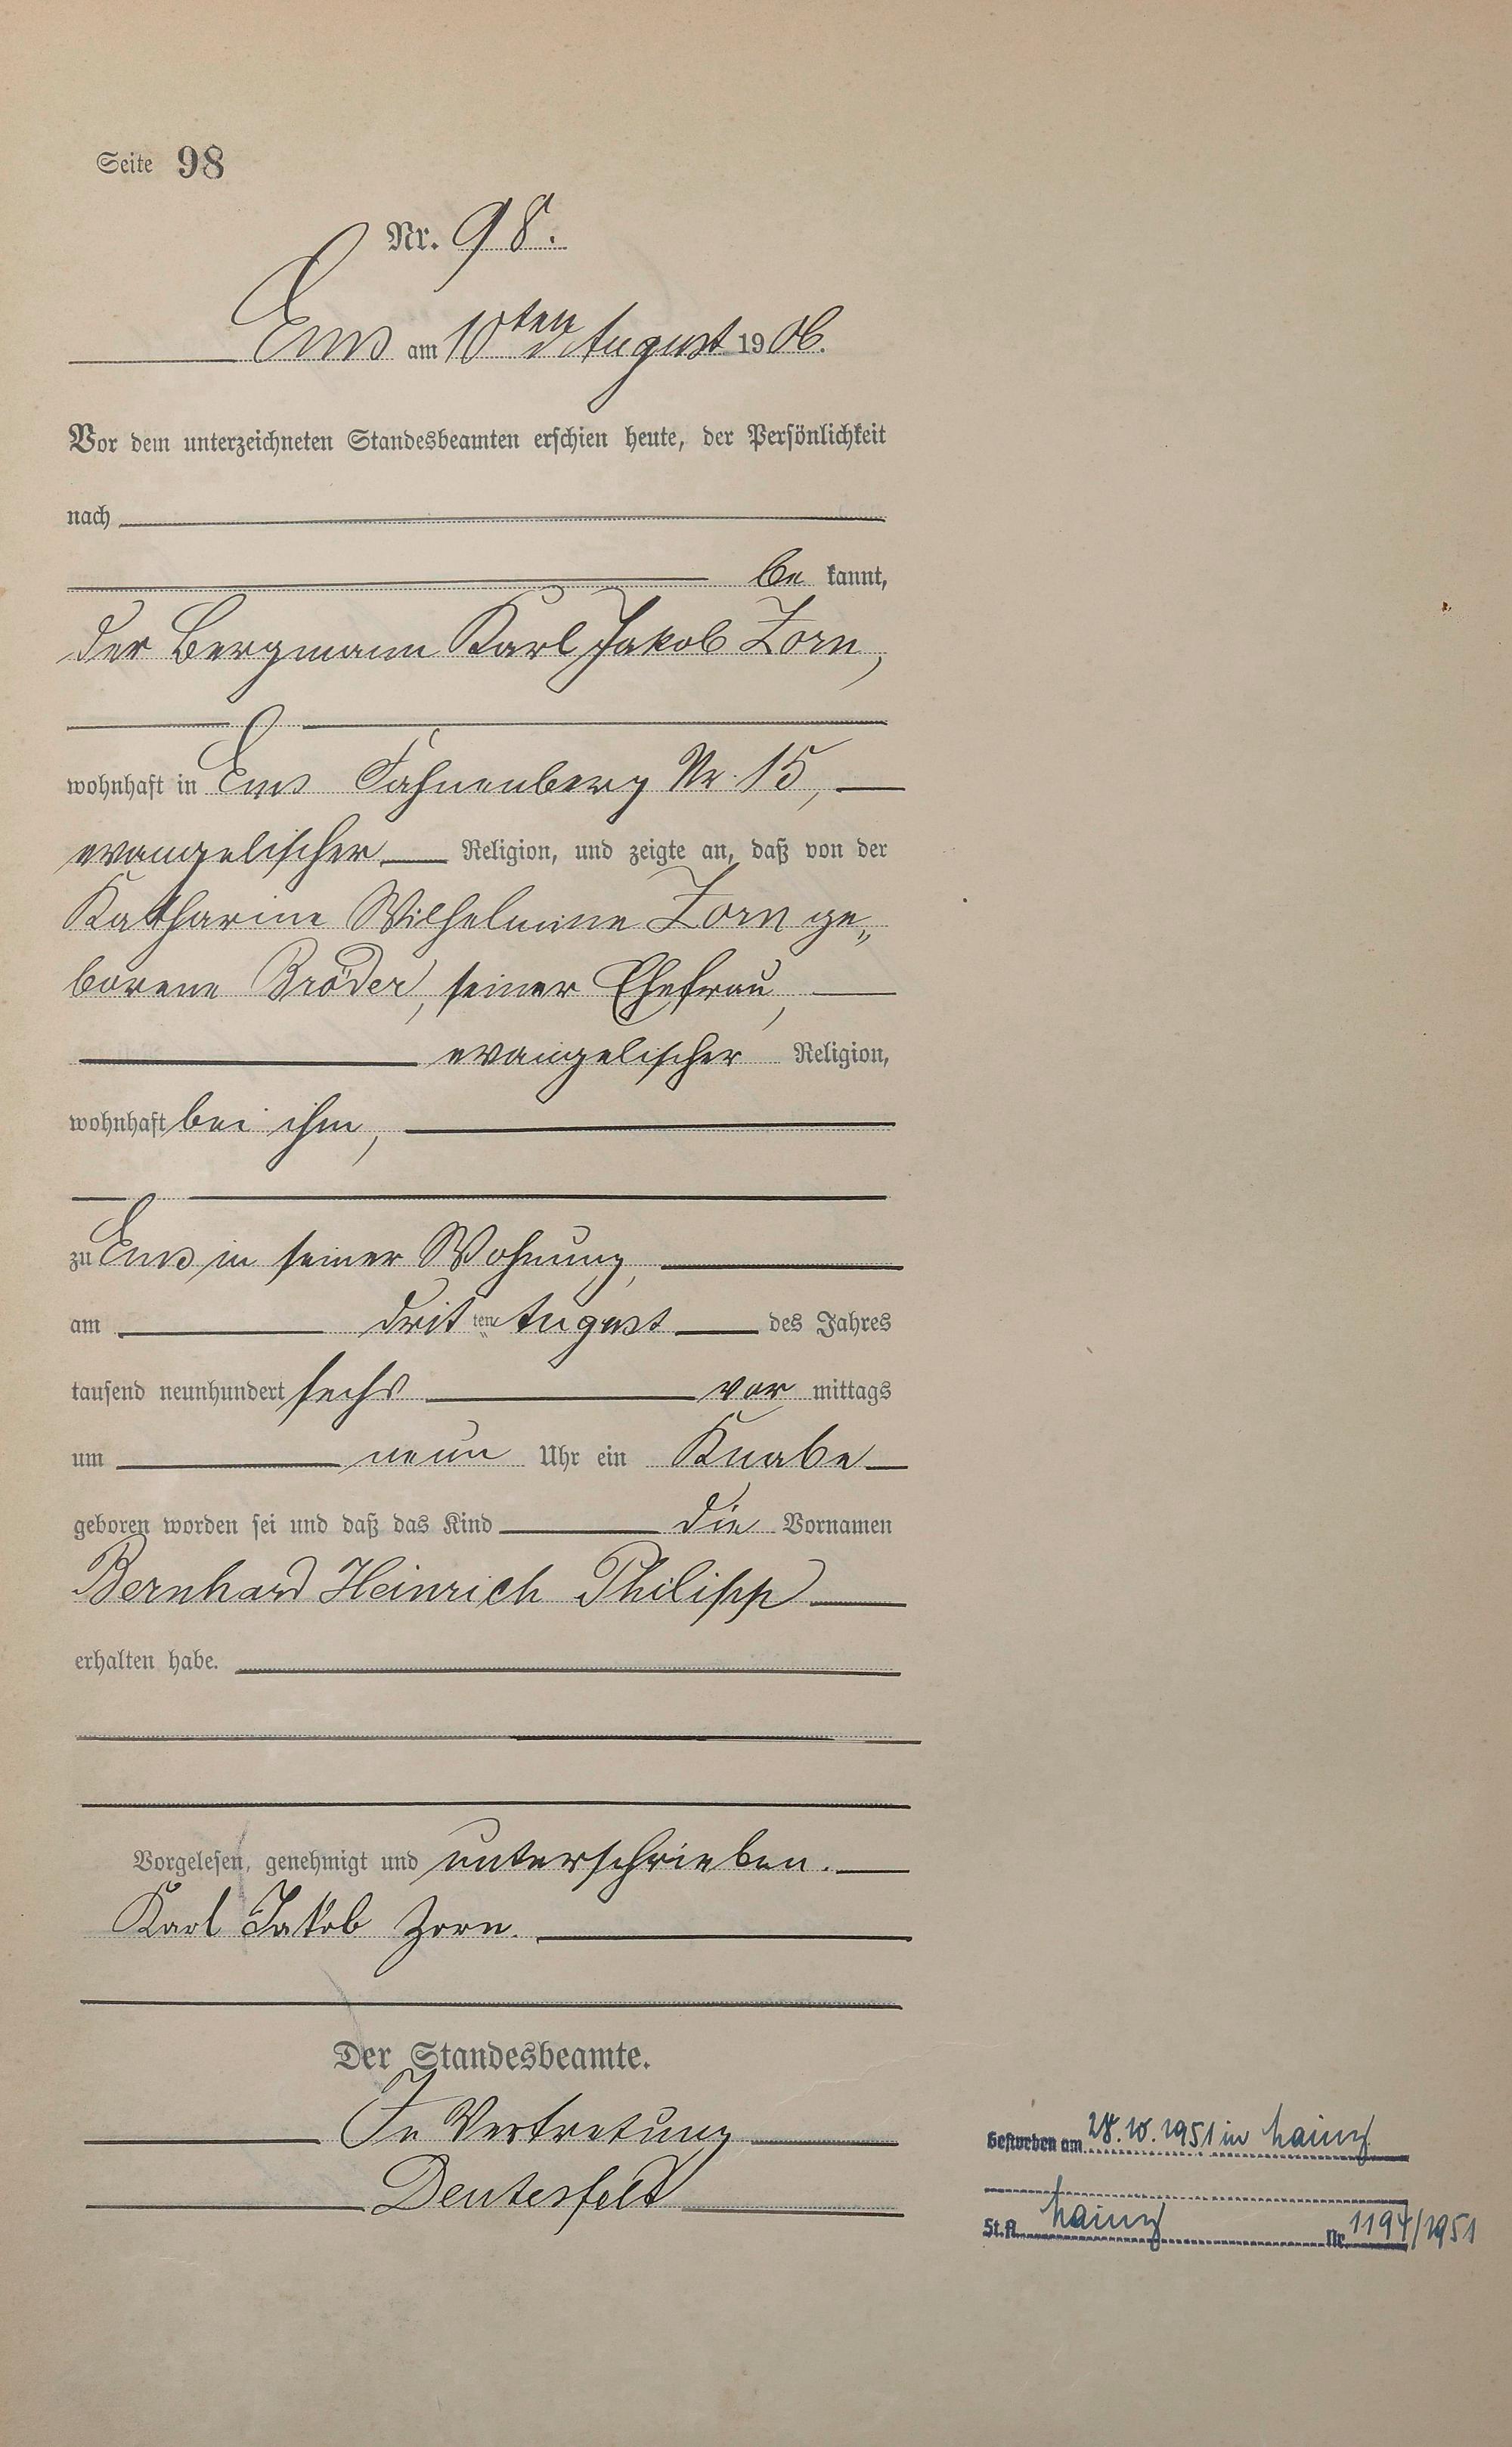 Seite 98
Nr. 98.
Ems am 10ten August 1906.
Vor dem unterzeichneten Standesbeamten erschien heute, der Persönlichkeit
nach
be kannt,
der Bergmann Karl Jakob Zorn,
wohnhaft in Ems Fahnenberg Nr. 15,
evangelischer Religion, und zeigte an, daß von der
Katharine Wilhelmine Zorn ge„
borene Bröder, seiner Ehefrau,
evangelischer Religion,
wohnhaft bei ihm,
zu Ems in seiner Wohnung,
am dritten August des Jahres
tausend neunhundert sechs vor mittags
um neun Uhr ein Knabe
geboren worden sei und daß das Kind die Vornamen
Bernhard Heinrich Philipp
erhalten habe.
Vorgelesen, genehmigt und unterschrieben.
Karl Jakob Zorn.
Der Standesbeamte.
In Vertretung
Deutesfeld
Gestorben am 28.10.1951 in Mainz
St.A. Mainz Nr. 1194/1951